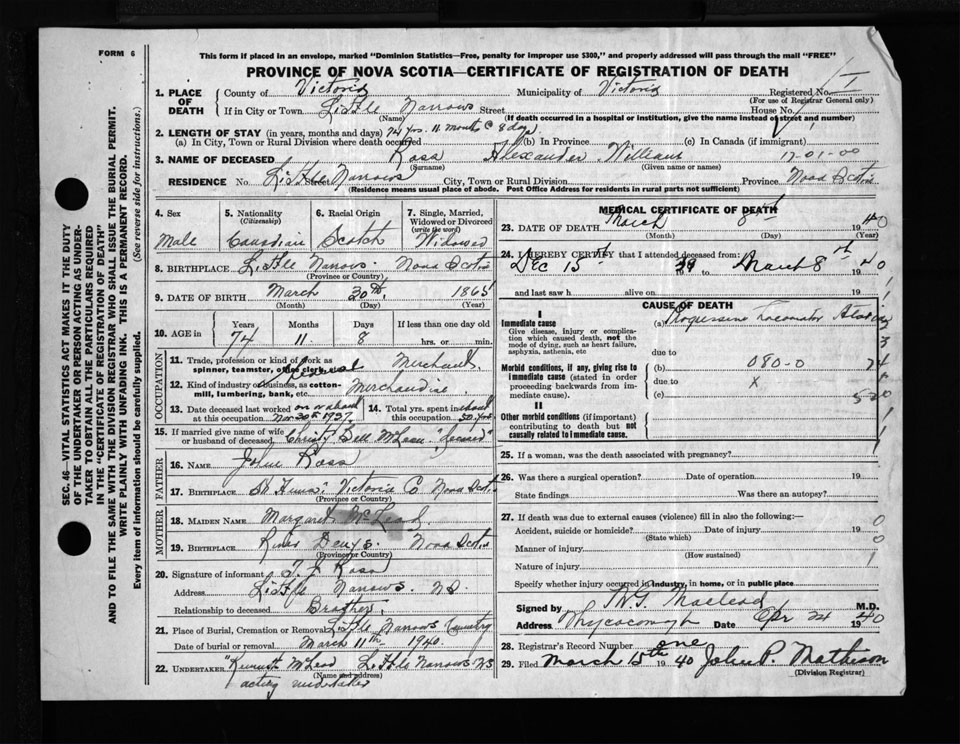 FORM 6
This form if placed in an envelope, marked "Dominion Statistics—Free, penalty for improper use $300," and properly addressed will pass through the mail "FREE"
PROVINCE OF NOVA SCOTIA—CERTIFICATE OF REGISTRATION OF DEATH
SEC. 46—VITAL STATISTICS ACT MAKES IT THE DUTY
OF THE UNDERTAKER OR PERSON ACTING AS UNDER-
TAKER TO OBTAIN ALL THE PARTICULARS REQUIRED
IN THE "CERTIFICATE OF REGISTRATION OF DEATH"
AND TO FILE THE SAME WITH THE DIVISION REGISTRAR WHO SHALL ISSUE THE BURIAL PERMIT.
WRITE PLAINLY WITH UNFADING INK. THIS IS A PERMANENT RECORD.
Every item of information should be carefully supplied. (See reverse side for instructions.)
1. PLACE OF DEATH
County of Victoria Municipality of Victoria Registered No. 1
(For use of Registrar General only)
If in City or Town Little Narrows Street House No.
(Name) (If death occurred in a hospital or institution, give the name instead of street and number)
2. LENGTH OF STAY (in years, months and days) 74 yrs. 11 months & 8 days
(a) In City, Town or Rural Division where death occurred (b) In Province (c) In Canada (if immigrant)
3. NAME OF DECEASED Ross Alexander William 17-01-00
(Surname) (Given name or names)
RESIDENCE No. Little Narrows Street City, Town or Rural Division Province Nova Scotia
(Residence means usual place of abode. Post Office Address for residents in rural parts not sufficient)
4. Sex Male
5. Nationality (Citizenship) Canadian
6. Racial Origin Scotch
7. Single, Married, Widowed or Divorced (write the word) Widowed
8. BIRTHPLACE Little Narrows Nova Scotia
(Province or Country)
9. DATE OF BIRTH March 30th 1865
(Month) (Day) (Year)
10. AGE in Years 74 Months 11 Days 8 If less than one day old hrs. or min.
OCCUPATION
11. Trade, profession or kind of work as spinner, teamster, office clerk, etc. Merchant
12. Kind of industry or business, as cotton-mill, lumbering, bank, etc. Merchandise
13. Date deceased last worked at this occupation on or about Nov 30th 1937
14. Total yrs. spent in this occupation about 50 yrs.
15. If married give name of wife or husband of deceased Christy Bell McLean "deceased"
FATHER
16. NAME John Ross
17. BIRTHPLACE Victoria Co Nova Scotia
(Province or Country)
MOTHER
18. MAIDEN NAME Margaret McLeod
19. BIRTHPLACE River Denys. Nova Scotia
(Province or Country)
20. Signature of informant T. J Ross
Address Little Narrows. N.S.
Relationship to deceased Brother
21. Place of Burial, Cremation or Removal Little Narrows Cemetery
Date of burial or removal March 11th 1940
22. UNDERTAKER Kenneth McLeod Little Narrows NS
(Name and address)
acting undertaker
MEDICAL CERTIFICATE OF DEATH
23. DATE OF DEATH March 8th 1940
(Month) (Day) (Year)
24. I HEREBY CERTIFY that I attended deceased from:
Dec 15th 39 to March 8th 1940
and last saw h alive on 19
CAUSE OF DEATH
I
Immediate cause
Give disease, injury or complication which caused death, not the mode of dying, such as heart failure, asphyxia, asthenia, etc
(a) Progressive Locomotor Ataxia
due to
Morbid conditions, if any, giving rise to immediate cause (stated in order proceeding backwards from immediate cause).
(b) 080-0
due to X
(c)
II
Other morbid conditions (if important) contributing to death but not causally related to immediate cause.
25. If a woman, was the death associated with pregnancy?
26. Was there a surgical operation? Date of operation 19
State findings Was there an autopsy?
27. If death was due to external causes (violence) fill in also the following:—
Accident, suicide or homicide? Date of injury 19
(State which)
Manner of injury
(How sustained)
Nature of injury
Specify whether injury occurred in industry, in home, or in public place
Signed by MacLeod M.D.
Address Whycocomagh Date Apr 24 1940
28. Registrar's Record Number one
29. Filed March 15th 1940 John P. Matheson
(Division Registrar)